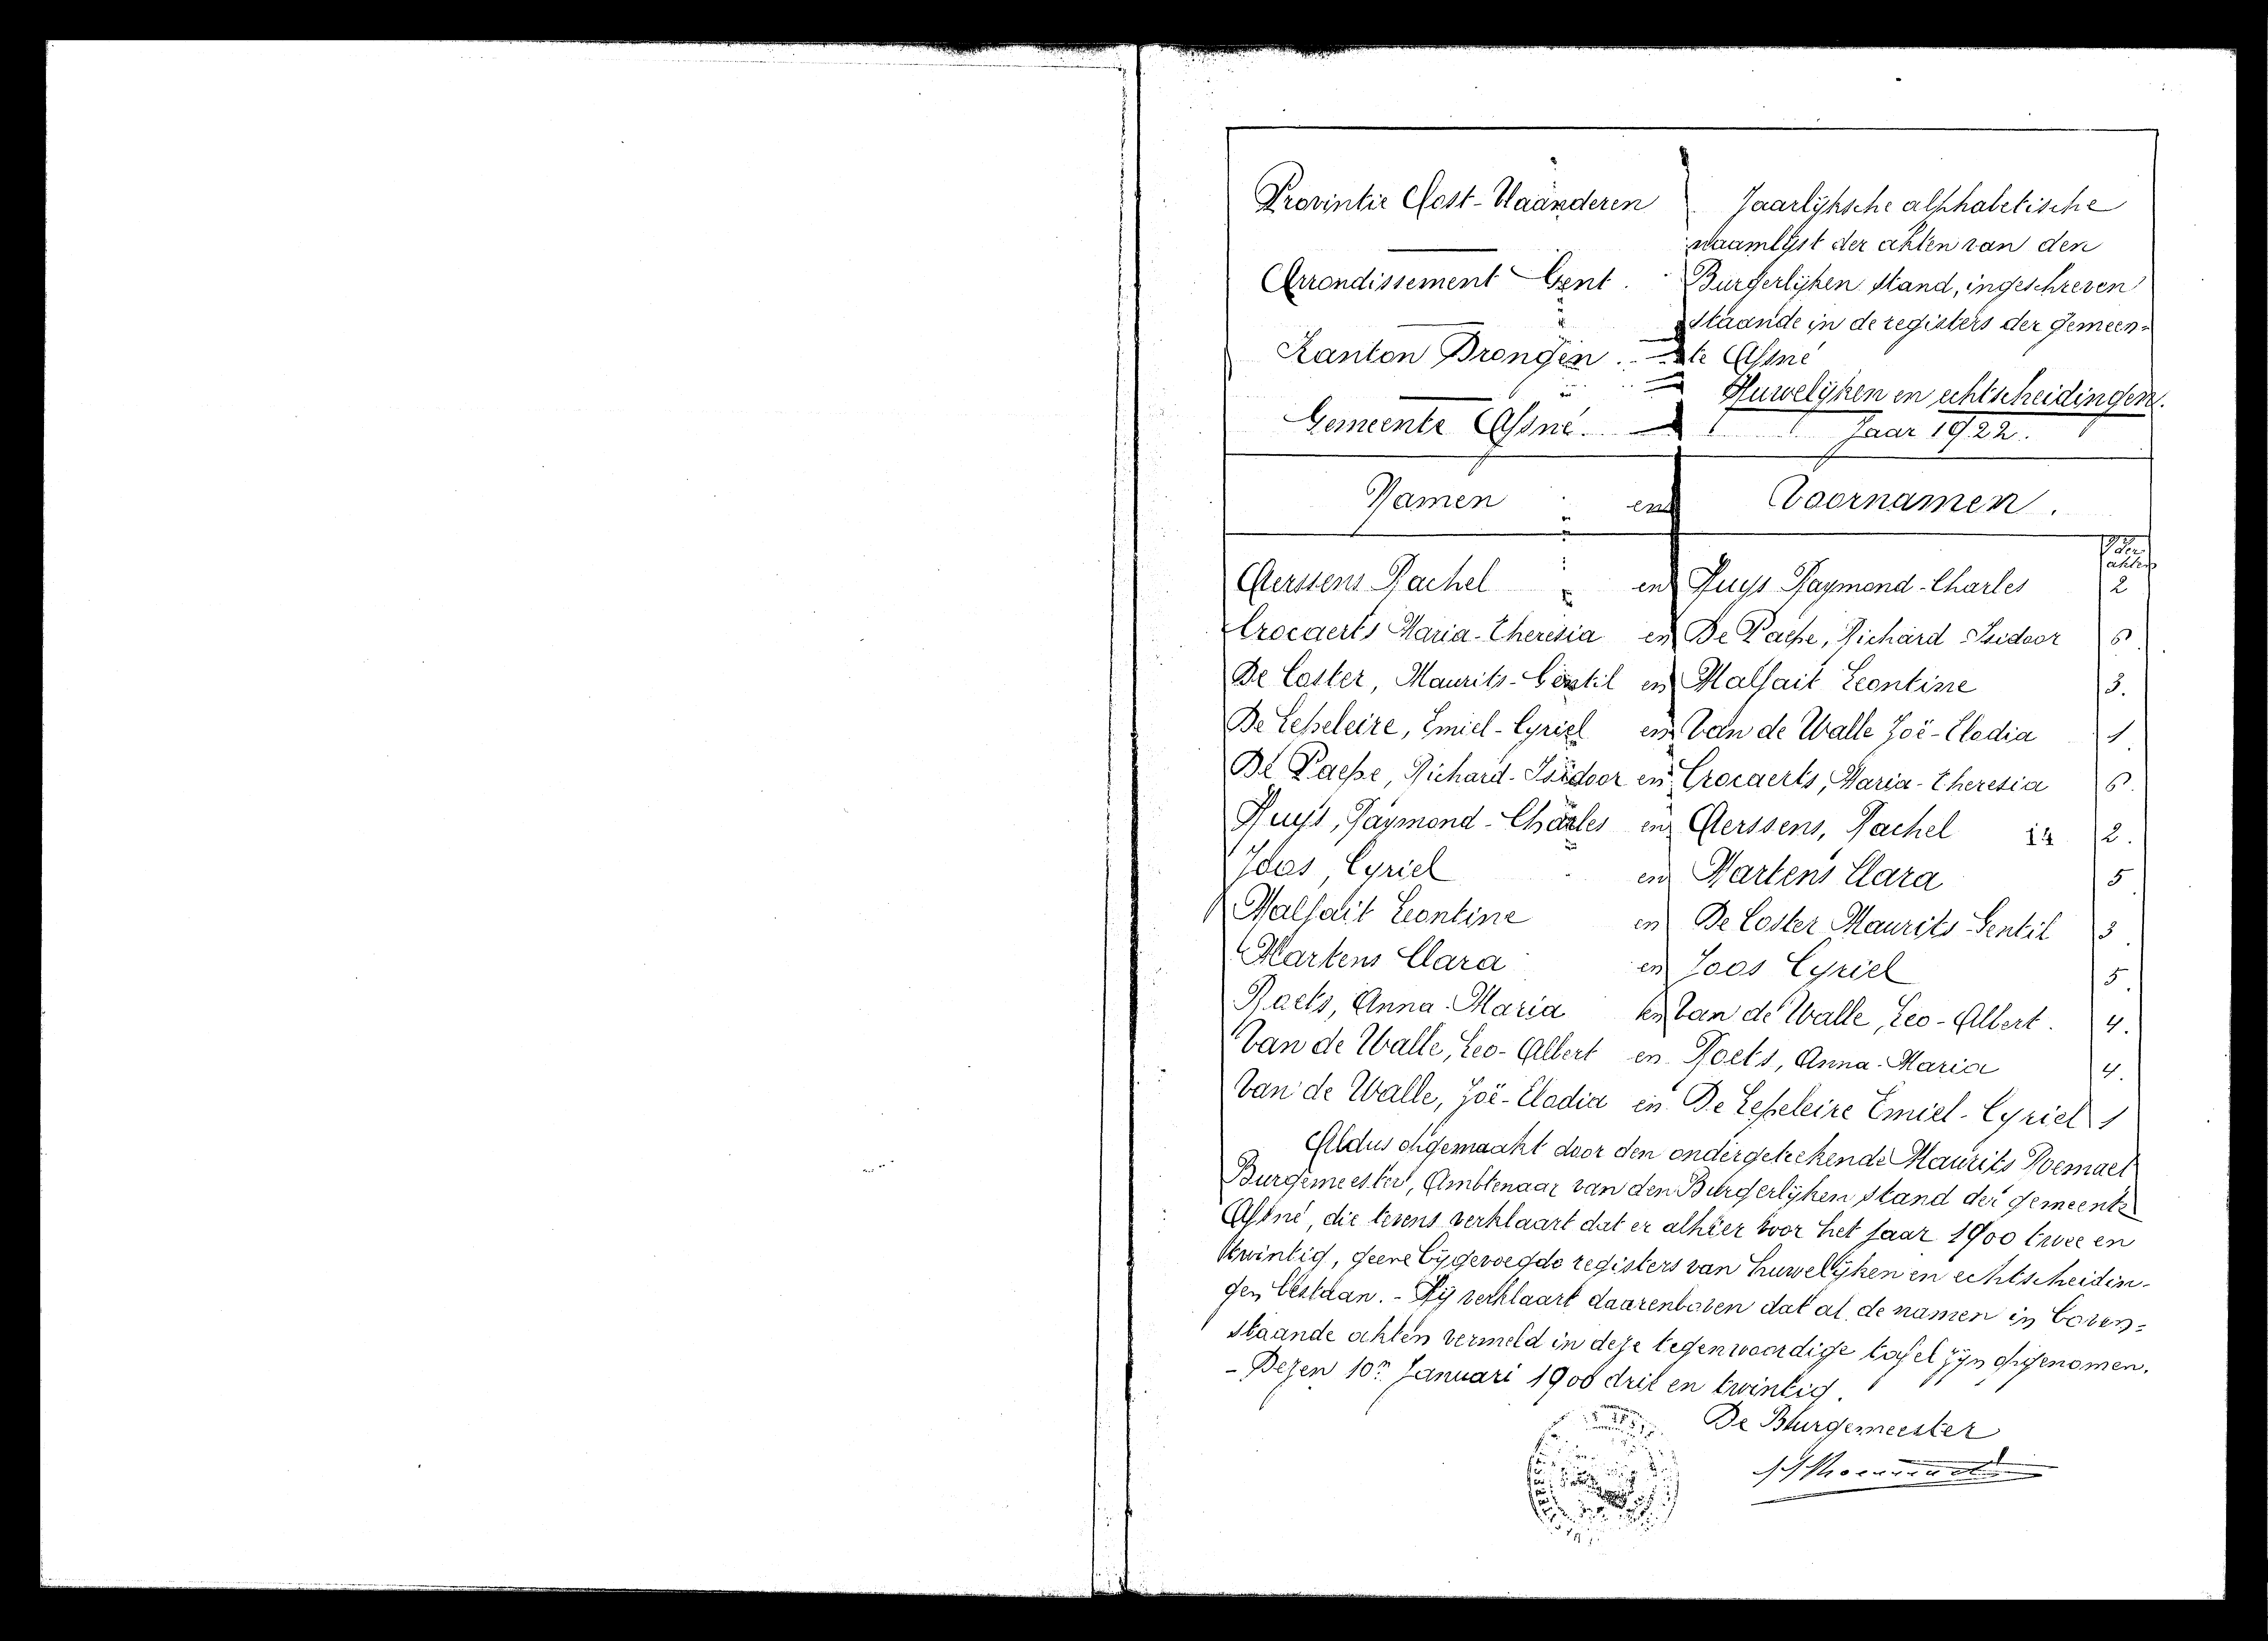 Provintie Oost-Vlaanderen
Arrondissement Gent.
Kanton Drongen.
Gemeente Afsné.
Jaarlijksche alphabetische
naamlijst der akten van den
Burgerlijken stand, ingeschreven
staande in de registers der gemeen-
te Afsné
Huwelijken en echtscheidingen.
Jaar 1922.
Namen en Voornamen.
Aerssens Rachel en Huys Raymond-Charles 2
Crocaerts Maria-Theresia en De Paepe, Richard Isidoor 6
De Coster, Maurits-Gentil en Malfait Leontine 3.
De Lepeleire, Emiel-Cyriel en Van de Walle Zoë-Elodia 1
De Paepe, Richard-Isidoor en Crocaerts, Maria-Theresia 6.
Huys, Raymond-Charles en Aerssens, Rachel 2.
Joos, Cyriel en Martens Clara 5
Malfait Leontine en De Coster Maurits Gentil 3
Martens Clara en Joos Cyriel 5
Roets, Anna-Maria en Van de Walle, Leo-Albert. 4.
Van de Walle, Leo-Albert en Roets, Anna-Maria 4.
Van de Walle, Zoë-Elodia en De Lepeleire Emiel-Cyriel 1
Aldus opgemaakt door den ondergeteekende Maurits Roemaet
Burgemeester, Ambtenaar van den Burgerlijken stand der gemeente
Afsné, die tevens verklaart dat er alhier voor het jaar 1900 twee en
twintig, geene bijgevoegde registers van huwelijken en echtscheidin-
gen bestaan. - Hij verklaart daarenboven dat al de namen in boven-
staande akten vermeld in deze tegenwoordige tafel zijn opgenomen.
- Dezen 10n Januari 1900 drie en twintig.
De Burgemeester